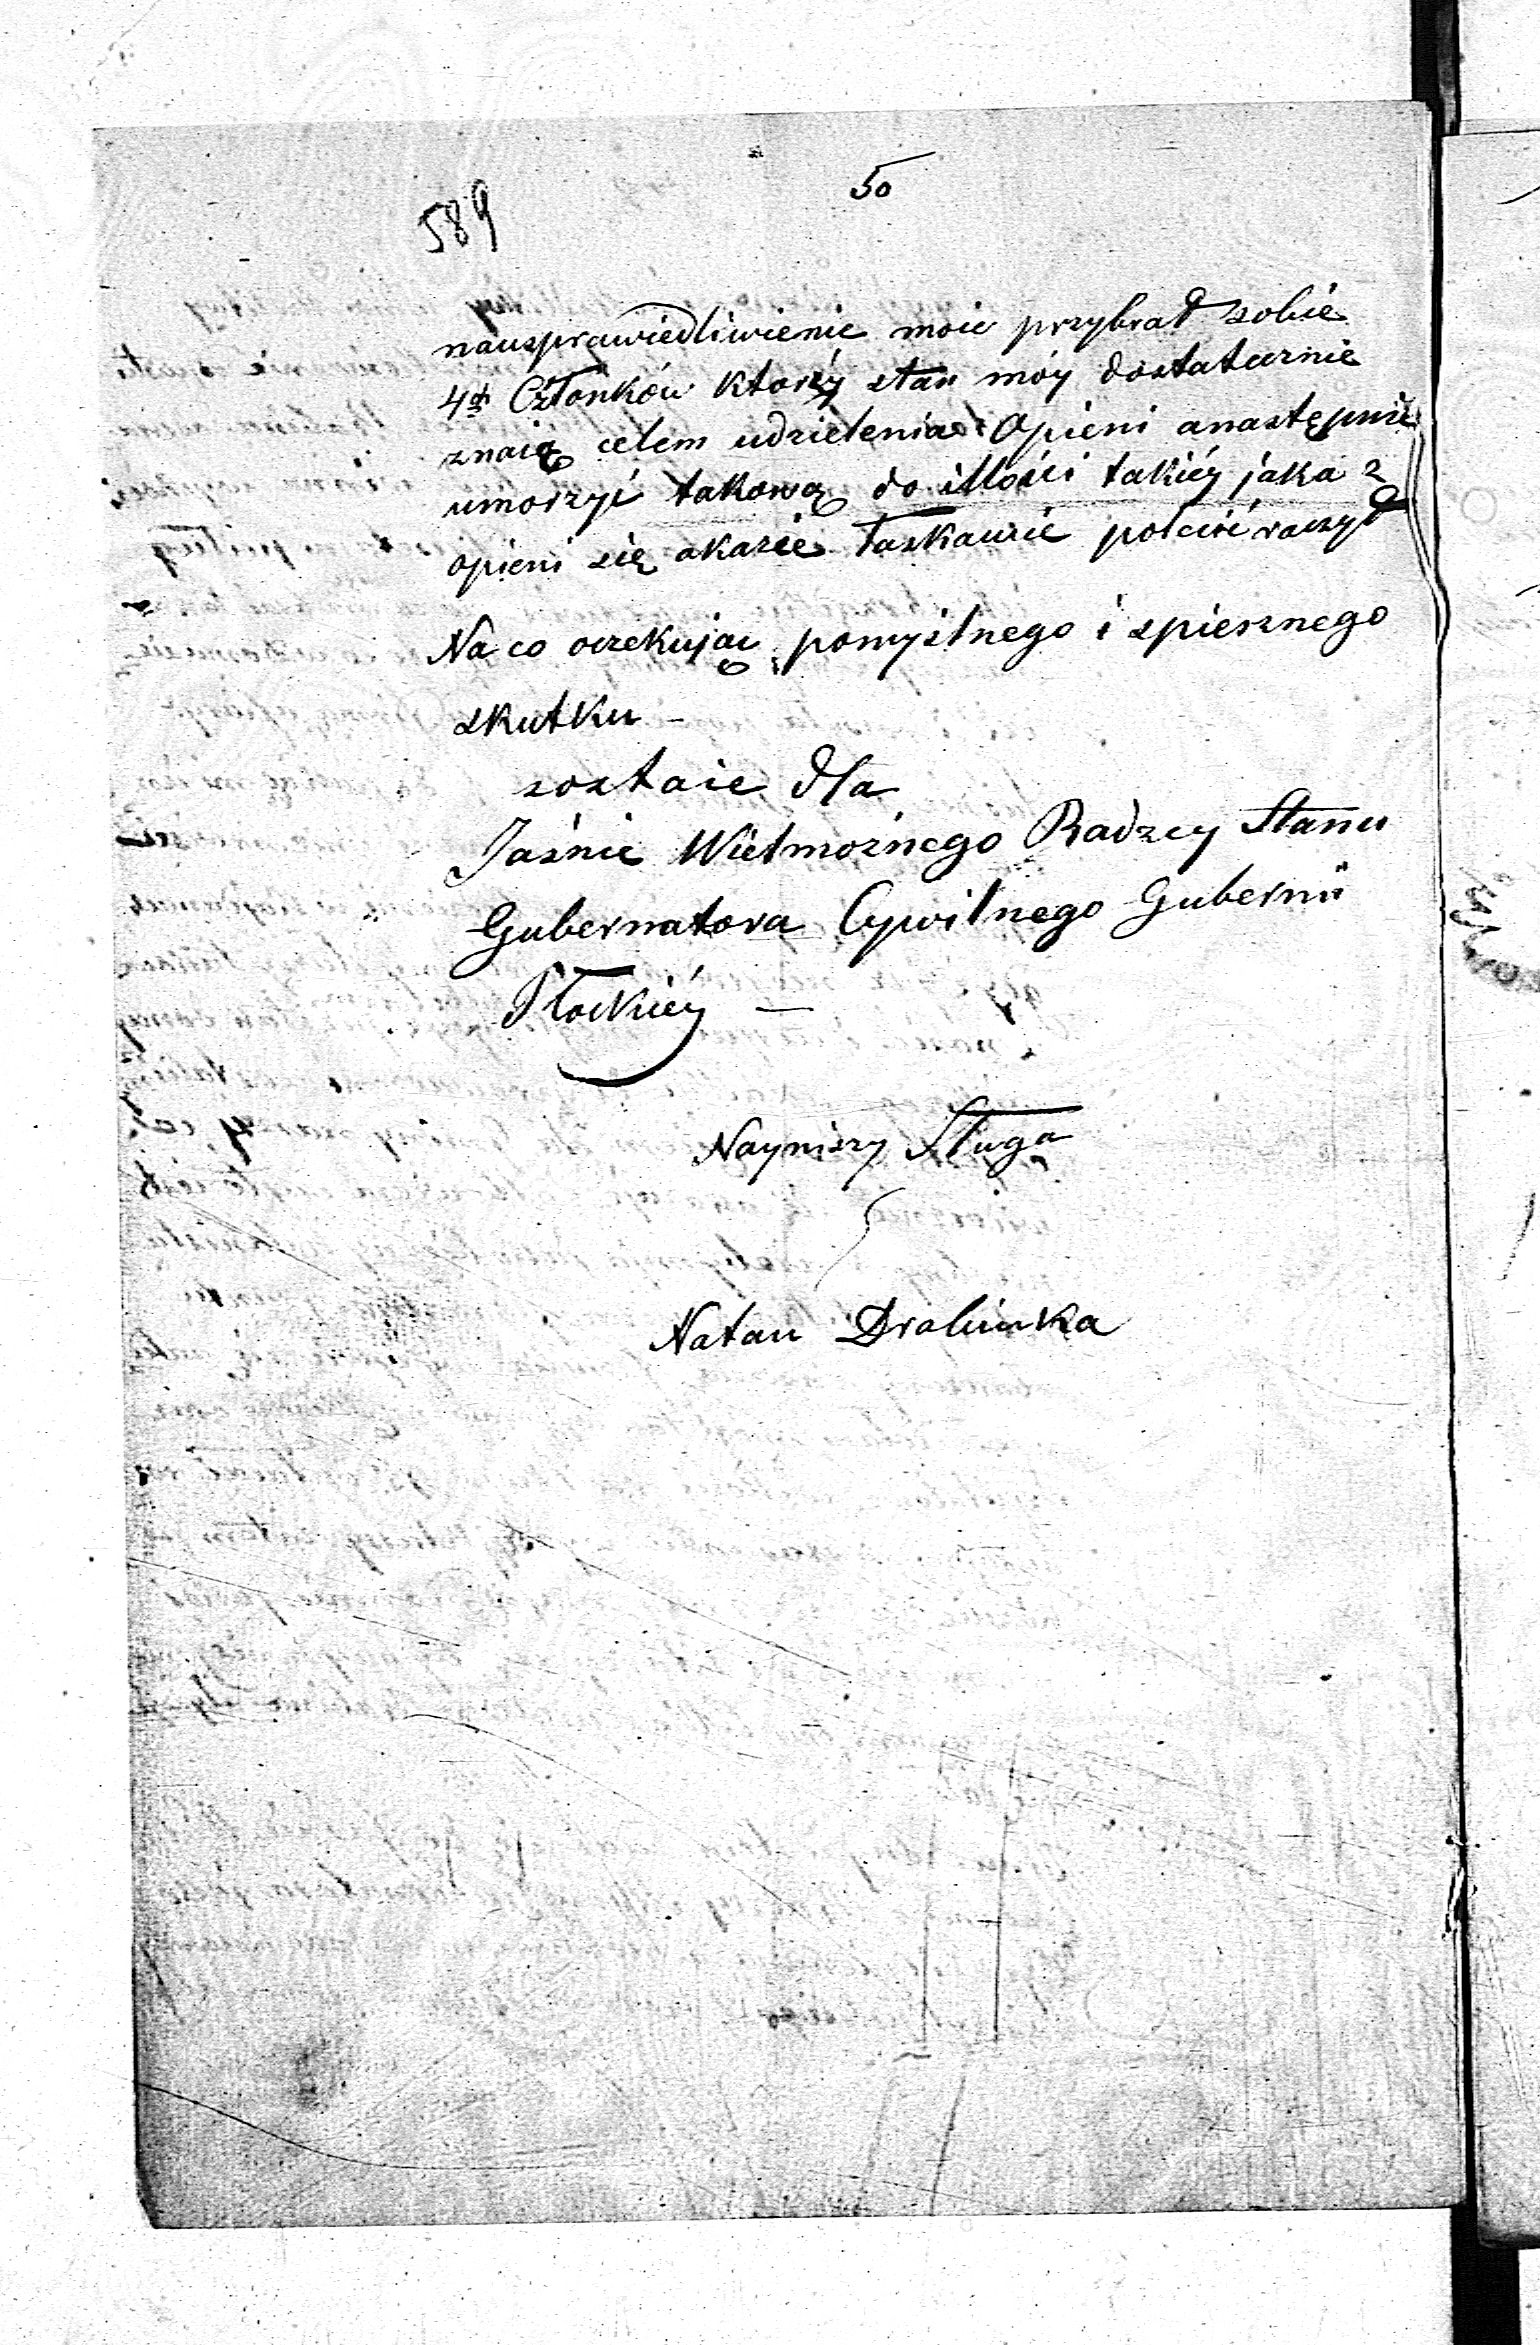 50
589
nausprawiedliwienie moie przybrał sobie
4ch Członków którzy stan móy dostatecznie
znaią celem udzielenia Opieni anastępnie
umorzyć takową do illości takiéy jaka z
opieni się okaże łaskawie polecić raczył
Na co oczekując pomyślnego i spiesznego
skutku –
zostaie dla
Jaśnie Wielmożnego Radzcy Stanu
Gubernatora Cywilnego Gubernii
Płockiéy —
Nayniszy Sługa
Natan Drabinka